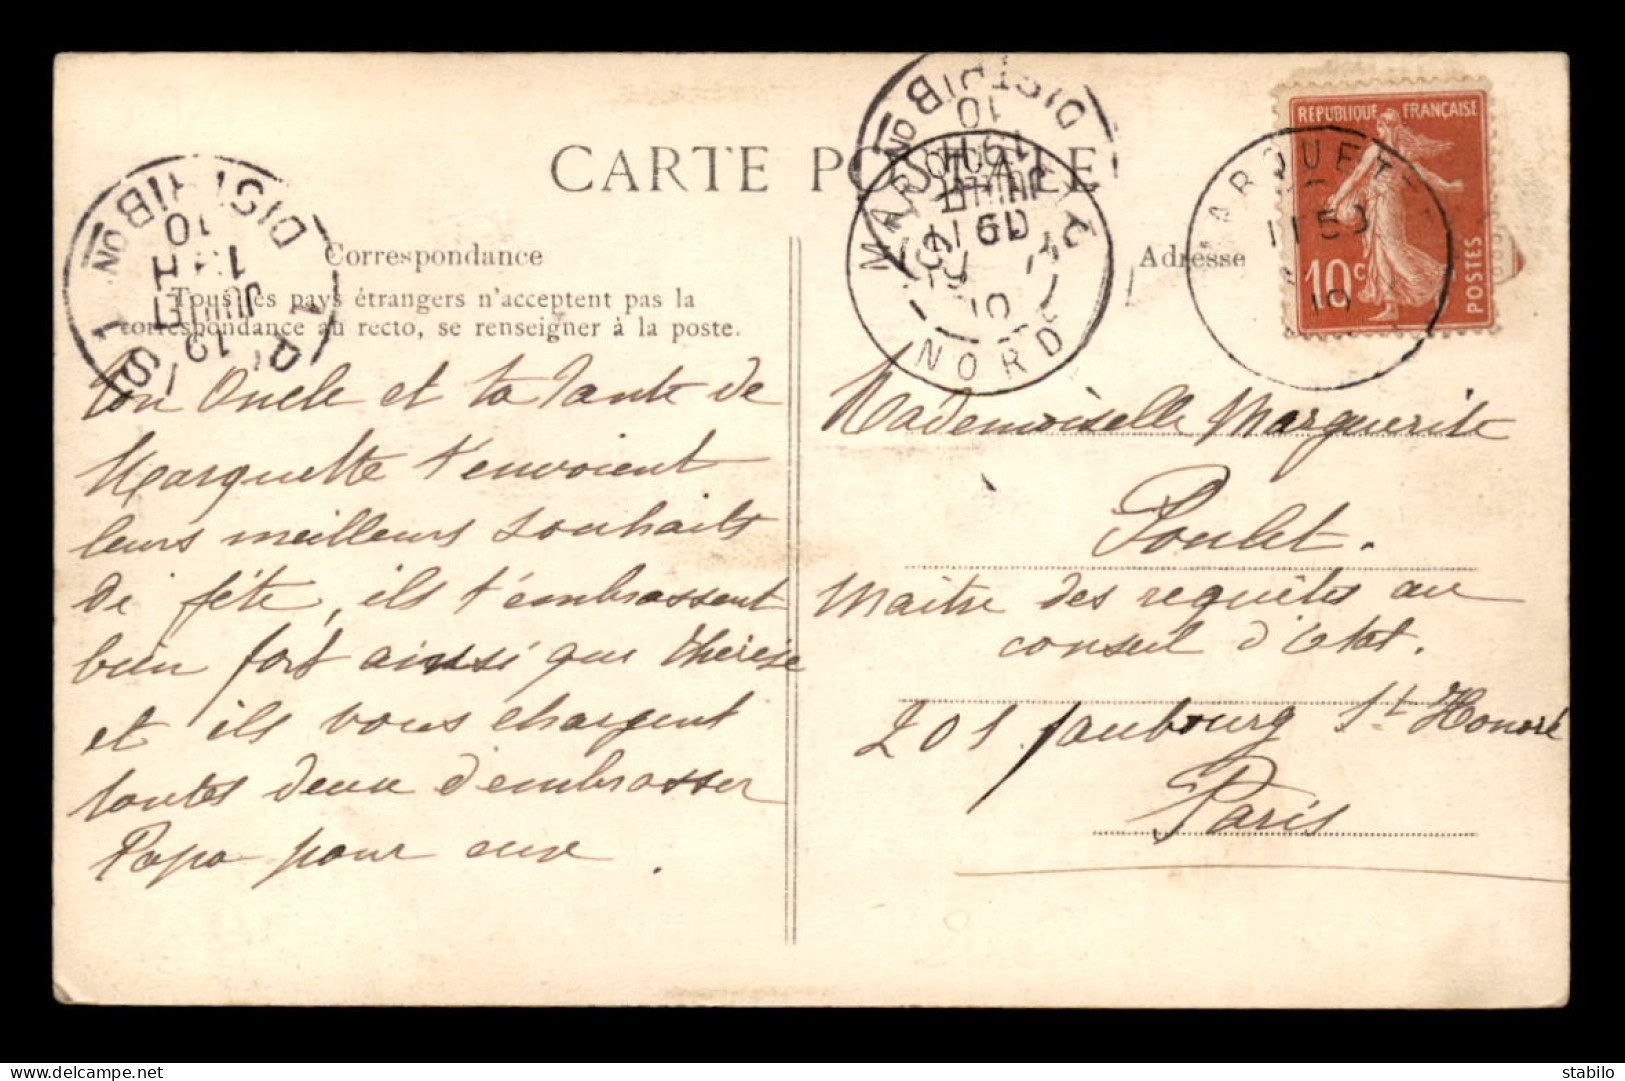 CARTE POSTALE
Correspondance
Adresse
Tous les pays étrangers n'acceptent pas la
correspondance au recto, se renseigner à la poste.
Ton Oncle et ta Tante de
Marquette t'envoient
leurs meilleurs souhaits
de fête, ils t'embrassent
bien fort ainsi que Thérèse
et ils vous chargent
toutes deux d'embrasser
Papa pour eux.
Mademoiselle Marguerite
Poulet.
Maitre des requêtes au
conseil d'Etat.
201 faubourg St Honoré
Paris
REPUBLIQUE FRANÇAISE
10c
POSTES
MARQUETTE
1150
10
NORD
PARIS
DISTRIBON
10
JUILLET
10
DISTRIBON
10
19H
JUILLET
delcampe.net
stabilo